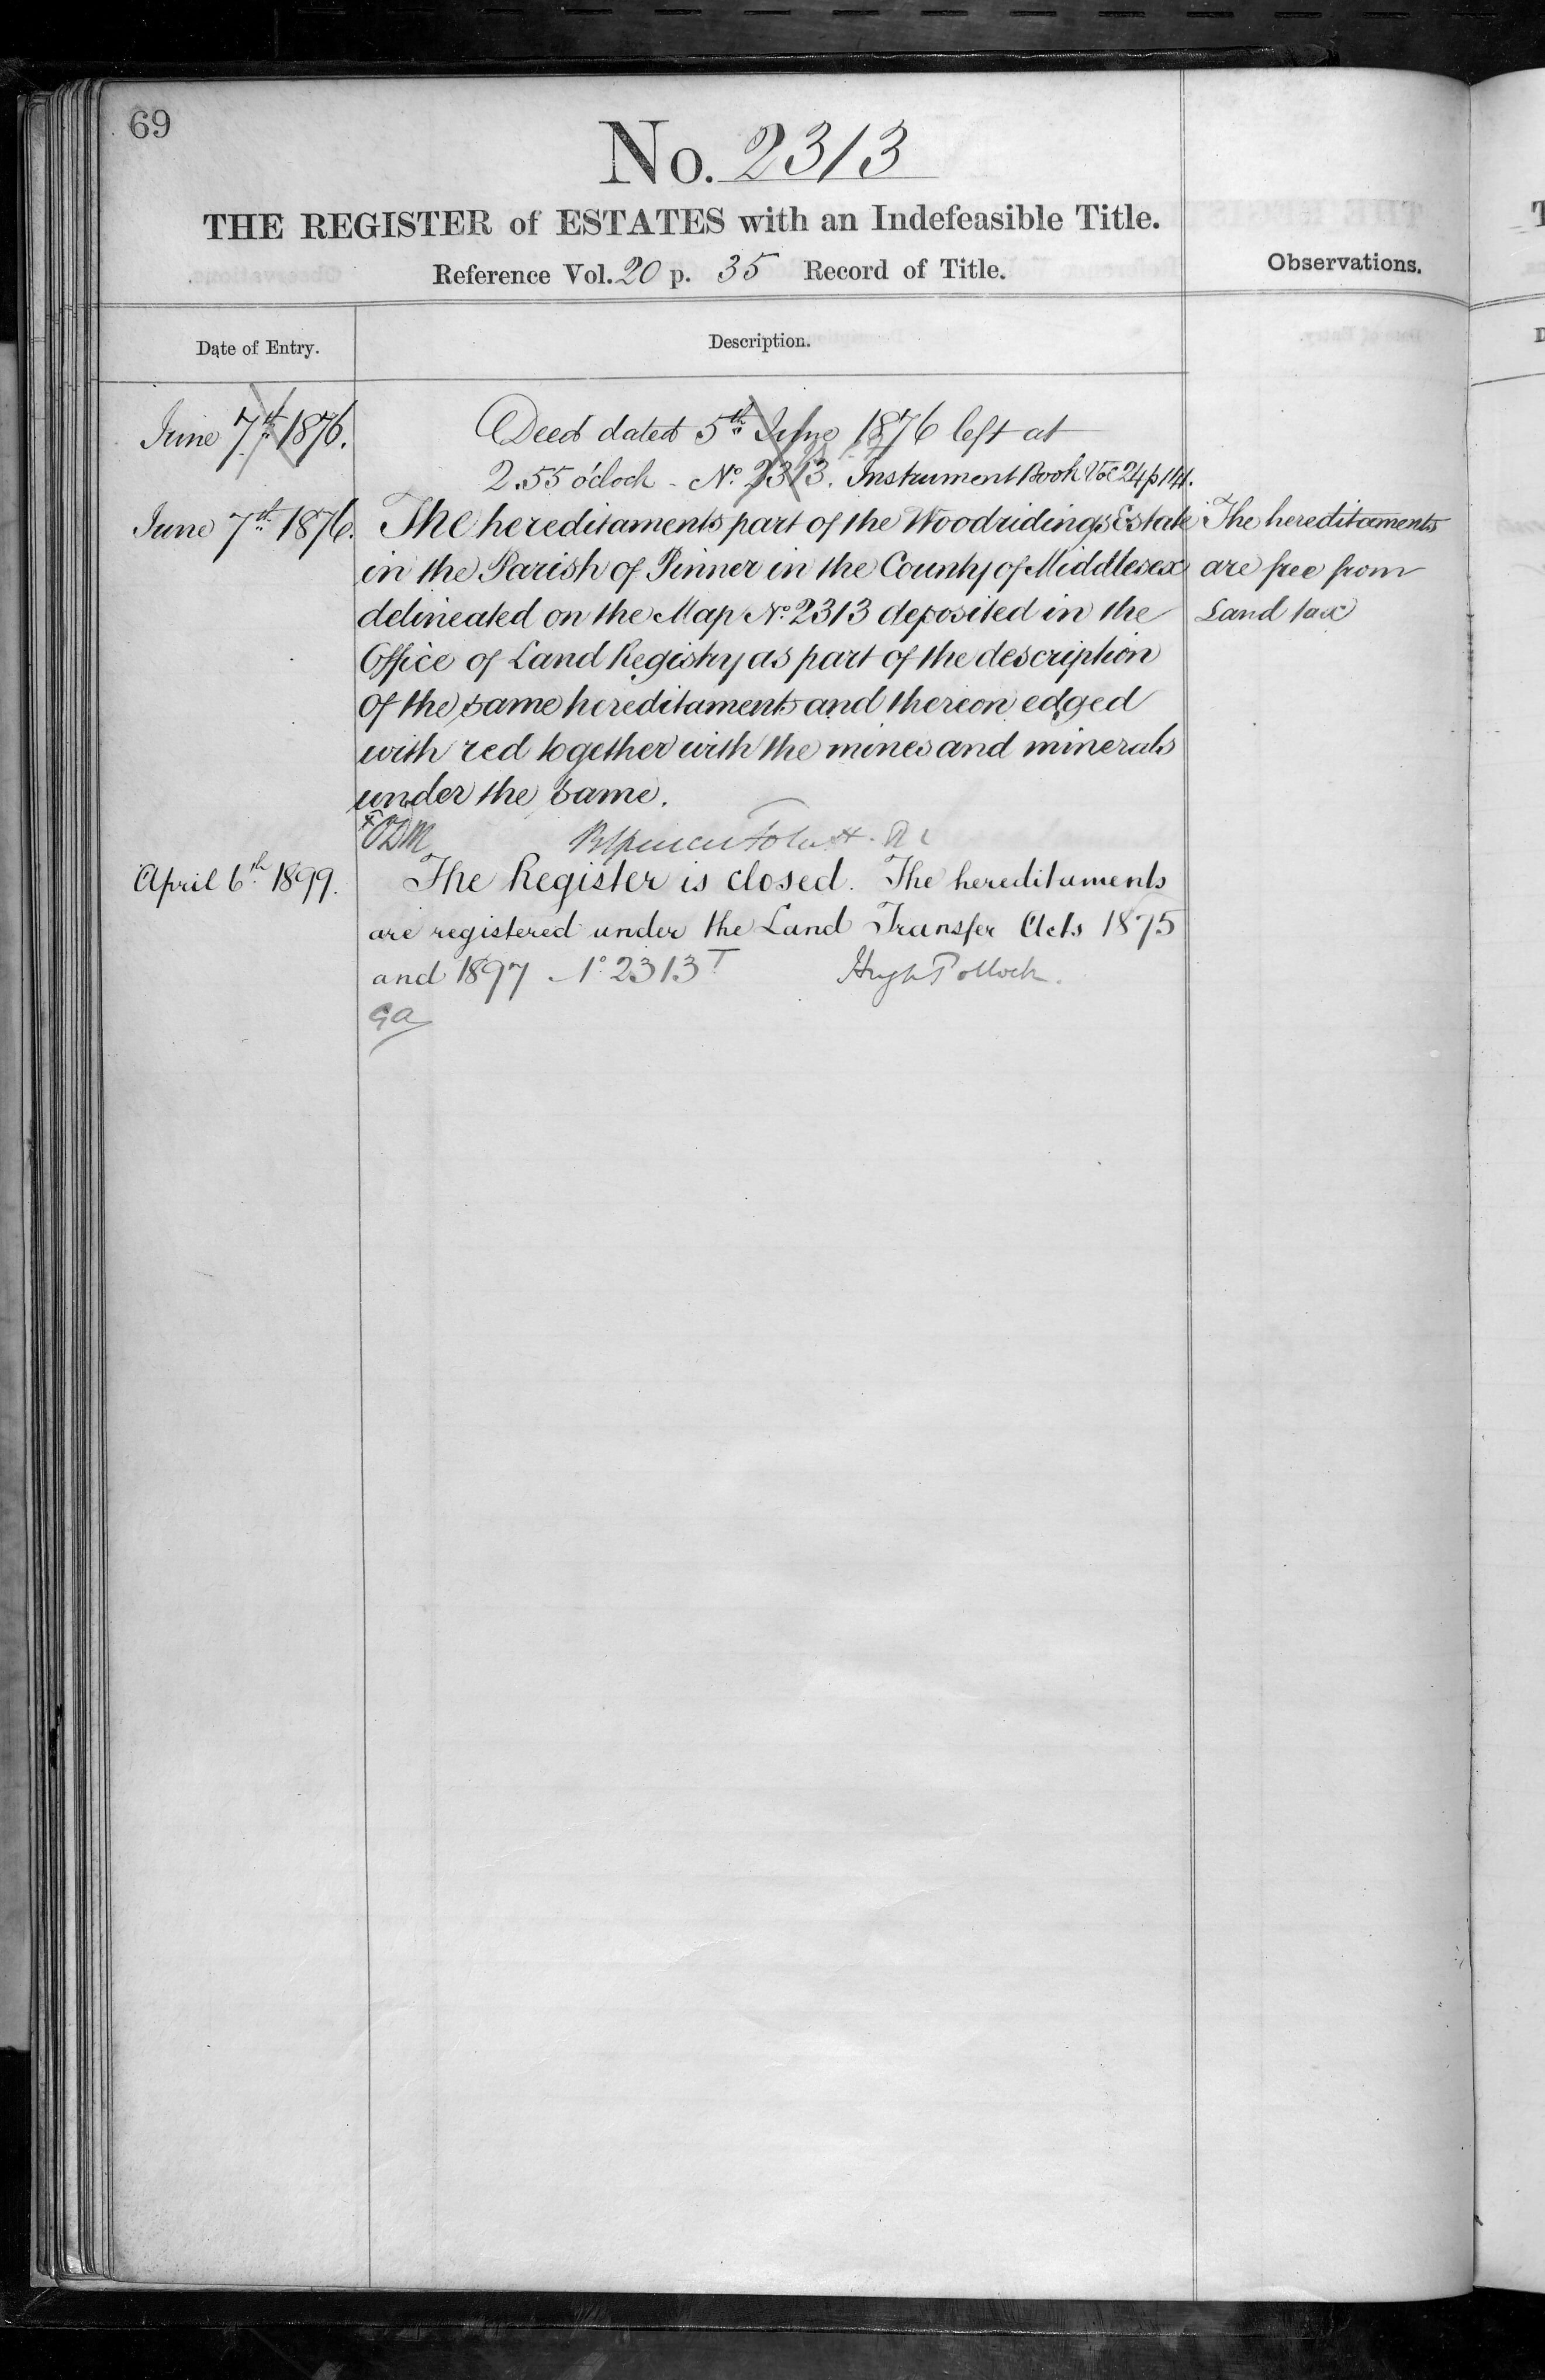 69
No. 2313
THE REGISTER of ESTATES with an Indefeasible Title.
Reference Vol. 20 p. 35 Record of Title.
Observations.
Date of Entry.
Description.
June 7th 1876.
Deed dated 5th June 1876 left at
2.55 o'clock - No. 2313. Instrument Book Vol 24 p 141.
June 7th 1876.
The hereditaments part of the Woodridings Estate
in the Parish of Pinner in the County of Middlesex
delineated on the Map No. 2313 deposited in the
Office of Land Registry as part of the description
of the same hereditaments and thereon edged
with red together with the mines and minerals
under the same.
The hereditaments
are free from
Land tax
April 6th 1899.
The Register is closed. The hereditaments
are registered under the Land Transfer Acts 1875
and 1897 No 2313 T
Hugh Pollock.